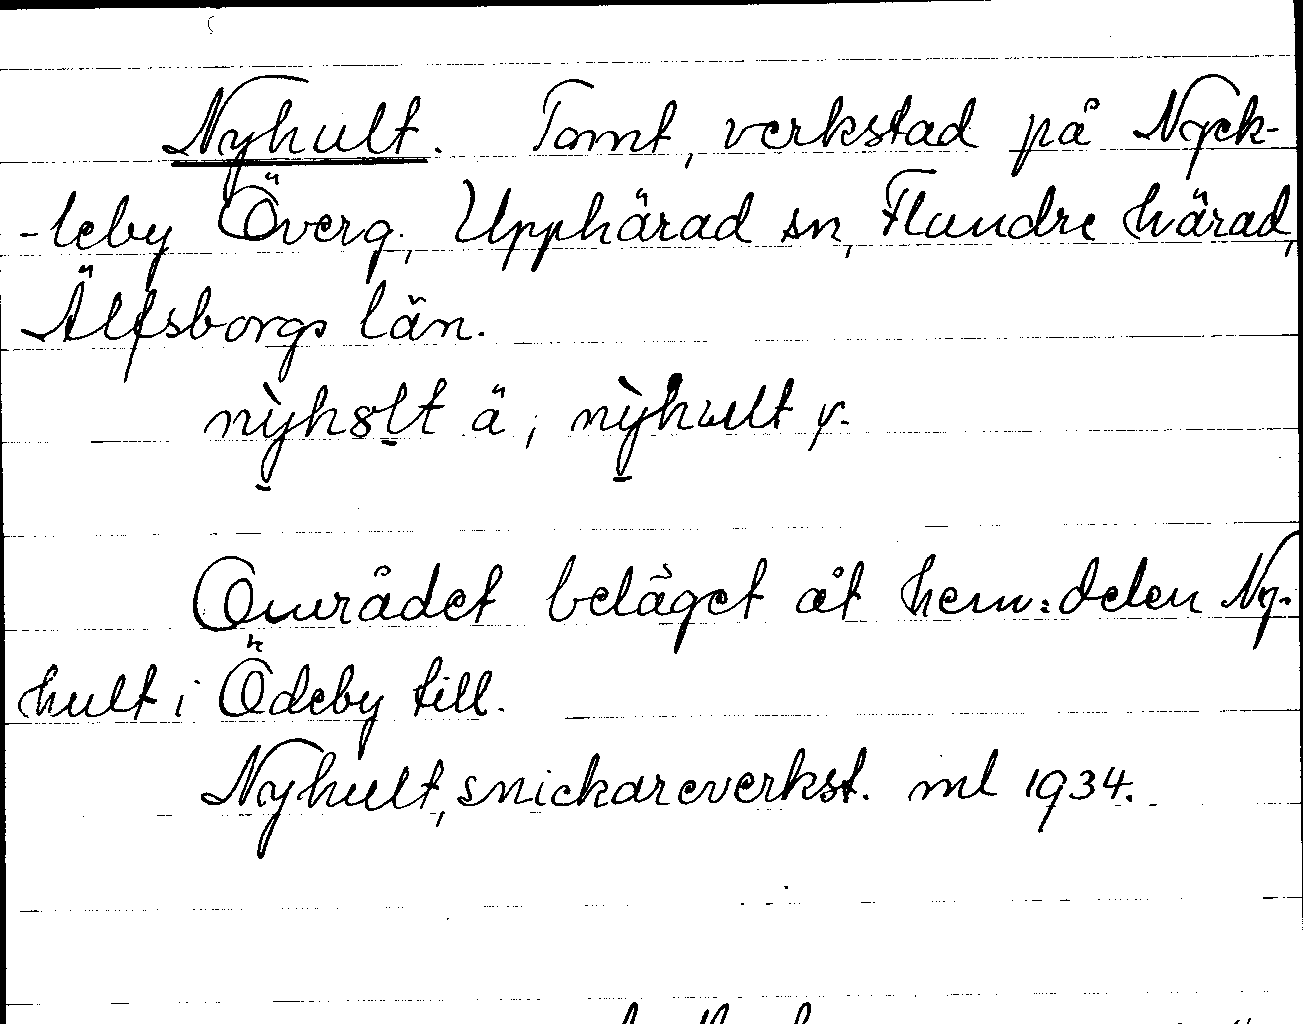 Nyhult. Tomt, verkstad på Nyck-
-leby Överg., Upphärad sn, Flundre härad,
Älfsborgs län.
nỳhølt ä, nỳhult y.
Området beläget åt hem:delen Ny-
hult i Ödeby till.
Nyhult, snickareverkst. ml 1934.